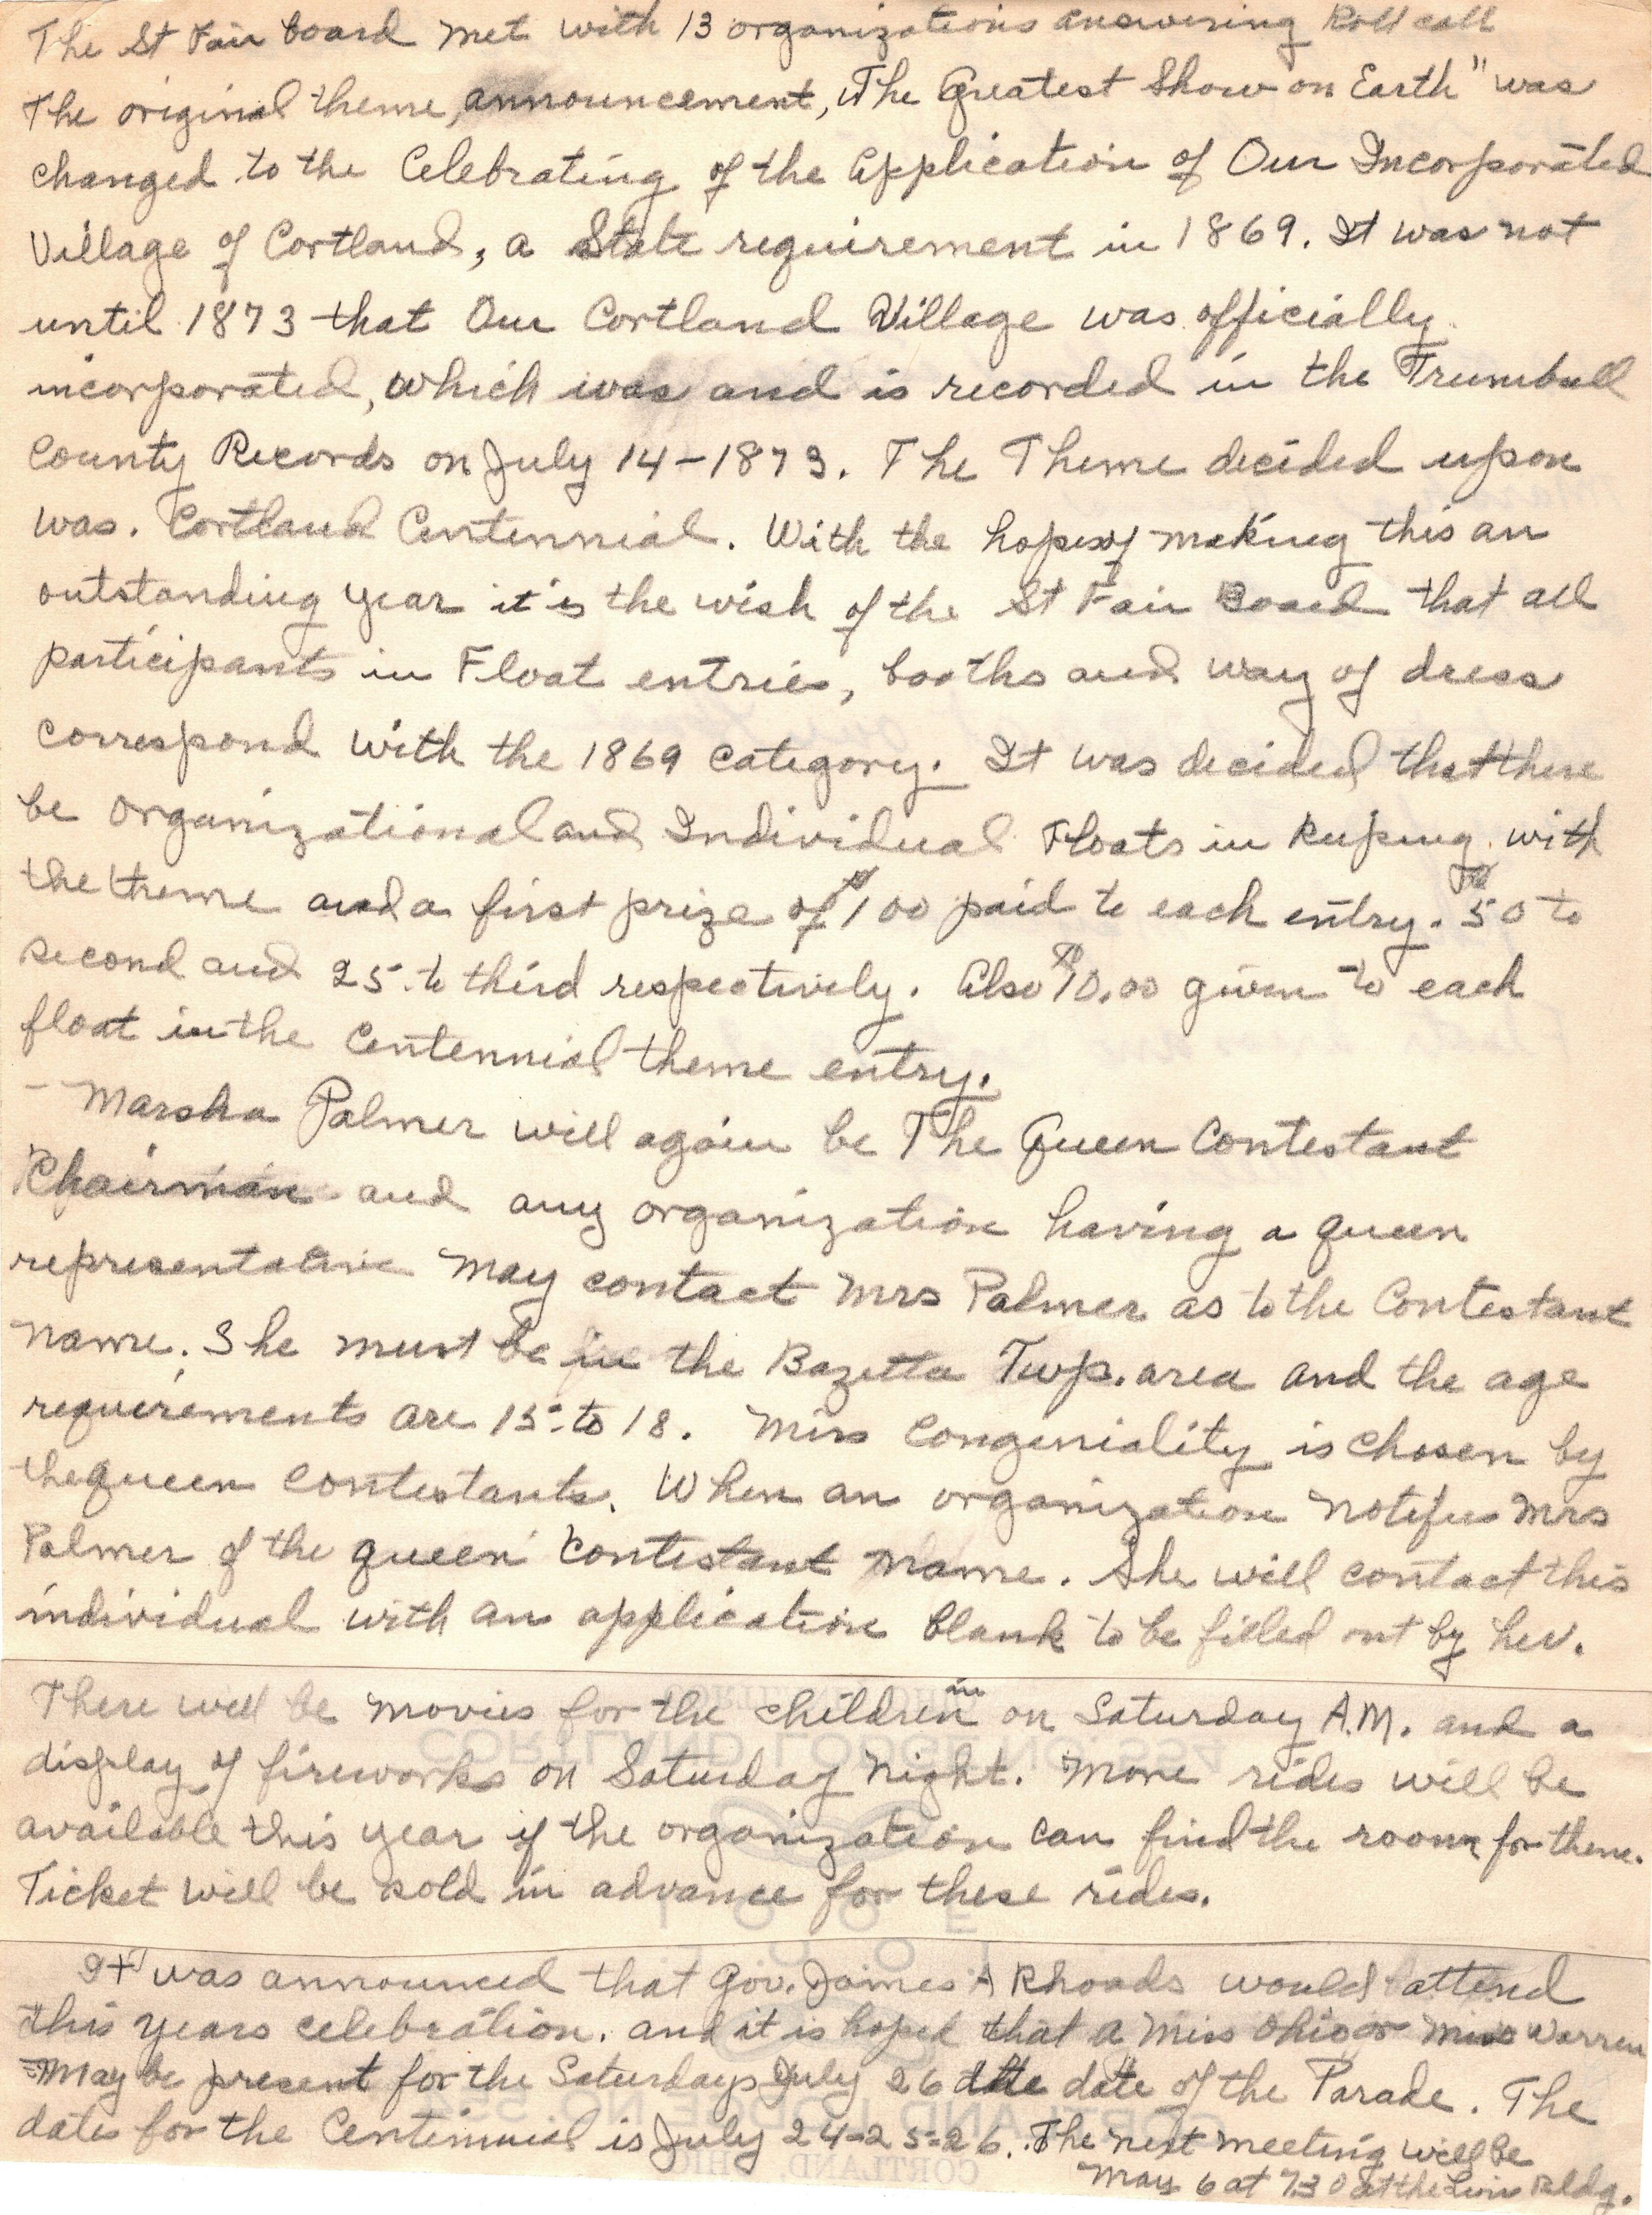 The St Fair board met with 13 organizations answering Roll call
The original theme, announcement, "The Greatest Show on Earth" was
changed to the Celebrating of the Application of Our Incorporated
Village of Cortland, a State requirement in 1869. It was not
until 1873 that Our Cortland Village was officially
incorporated, which was and is recorded in the Trumbull
County Records on July 14-1873. The Theme decided upon
was. Cortland Centennial. With the hopes of making this an
outstanding year it is the wish of the St Fair Board that all
participants in Float entries, booths and way of dress
correspond with the 1869 category. It was decided that there
be organizational and Individual Floats in keeping with
the theme and a first prize of $100 paid to each entry. $50 to
second and 25 to third respectively. Also $10.00 given to each
float in the Centennial theme entry.
- Marsha Palmer will again be The Queen Contestant
Chairman and any organization having a queen
representative may contact Mrs Palmer as to the Contestant
name. She must be in the Bazetta Twp. area and the age
requirements are 15 to 18. Miss Congeniality is chosen by
the queen contestants. When an organization notifies Mrs
Palmer of the queen contestant name. She will contact this
individual with an application blank to be filled out by her.
There will be movies for the children in on Saturday A.M. and a
display of fireworks on Saturday night. More rides will be
available this year if the organization can find the room for them.
Ticket will be sold in advance for these rides.
It was announced that Gov. James A Rhoads would attend
this years celebration. and it is hoped that a Miss Ohio or Miss Warren
may be present for the Saturdays July 26 date date of the Parade. The
dates for the Centennial is July 24-25-26. The next meeting will be
May 6 at 7:30 at the Lions Bldg.
CORTLAND LODGE NO. 554
I O O F
CORTLAND LODGE NO. 554
CORTLAND, OHIO